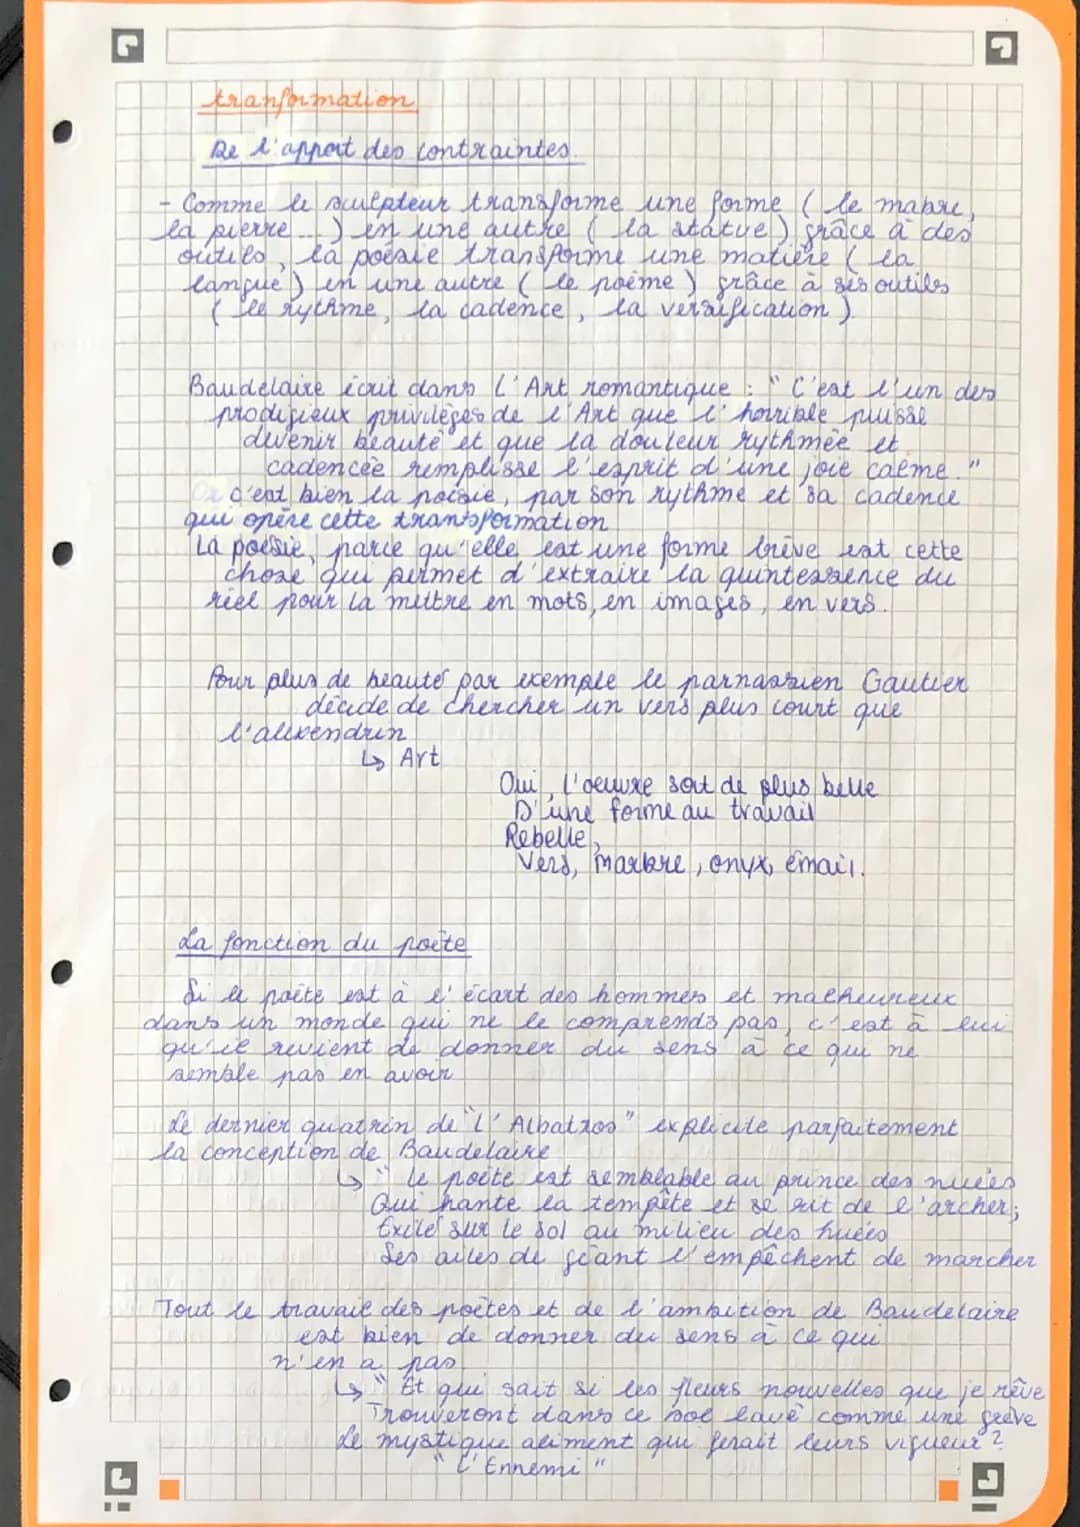 tranformation
De l'apport des contraintes.
- Comme le sculpteur transforme une forme ( le mabre,
la pierre ... ) en une autre ( la statue ) grâce à des
outils, la poésie transforme une matière ( la
langue ) en une autre ( le poème ) grâce à ses outils
( le rythme, la cadence, la versification ).
Baudelaire écrit dans L'Art romantique : " C'est l'un des
prodigieux privilèges de l'Art que l'horrible puisse
devenir beauté et que la douleur rythmée et
cadencée remplisse l'esprit d'une joie calme. "
Or c'est bien la poésie, par son rythme et sa cadence
qui opère cette transformation
La poésie, parce qu'elle est une forme brève est cette
chose qui permet d'extraire la quintessence du
réel pour la mettre en mots, en images, en vers.
Pour plus de beauté par exemple le parnassien Gautier
décide de chercher un vers plus court que
l'alexendrin
↳ Art
Oui, l'oeuvre sort de plus belle
D'une forme au travail
Rebelle,
Vers, marbre, onyx, émail.
La fonction du poète
Si le poète est à l'écart des hommes et malheureux
dans un monde qui ne le comprends pas, c'est à lui
qu'il revient de donner du sens à ce qui ne
semble pas en avoir
Le dernier quatrin de "L'Albatros" explicite parfaitement
la conception de Baudelaire
↳ " Le poète est semblable au prince des nuées
Qui hante la tempête et se rit de l'archer;
Exilé sur le sol au milieu des huées
Ses ailes de géant l'empêchent de marcher
Tout le travail des poètes et de l'ambition de Baudelaire
est bien de donner du sens à ce qui
n'en a pas
↳ " Et qui sait si les fleurs nouvelles que je rêve
Trouveront dans ce sol lavé comme une grève
Le mystique aliment qui ferait leurs vigueur ?
" L'Ennemi "